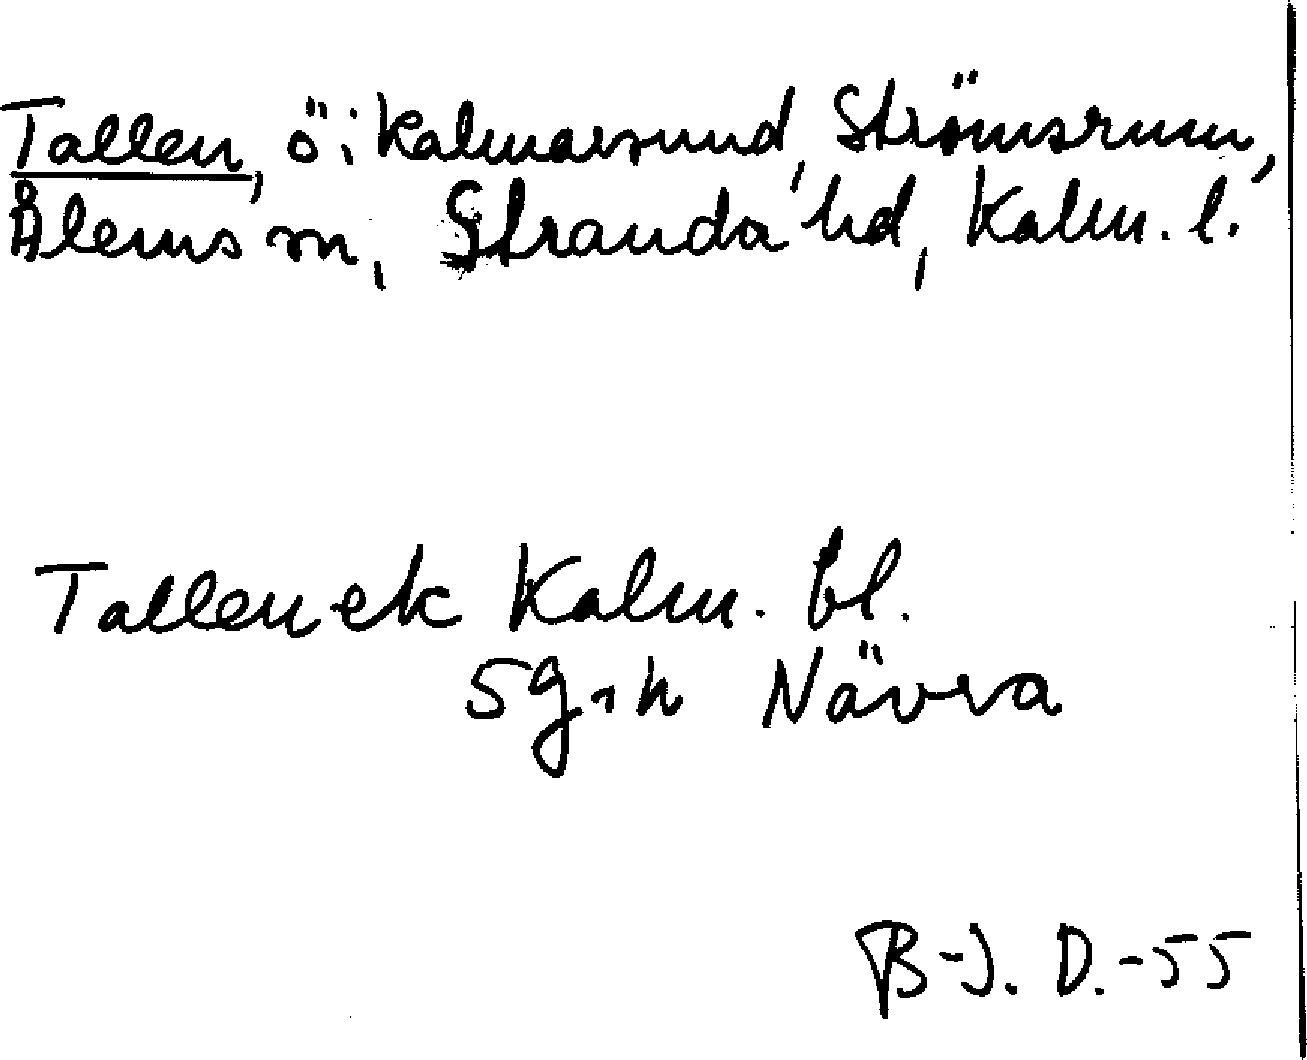 Tallen, ö i Kalmarsund, Strömsrum,
Ålems sn, Stranda hd, Kalm. l.
Tallen ek Kalm. bl.
5 g i h Nävra
B-J. D.-55